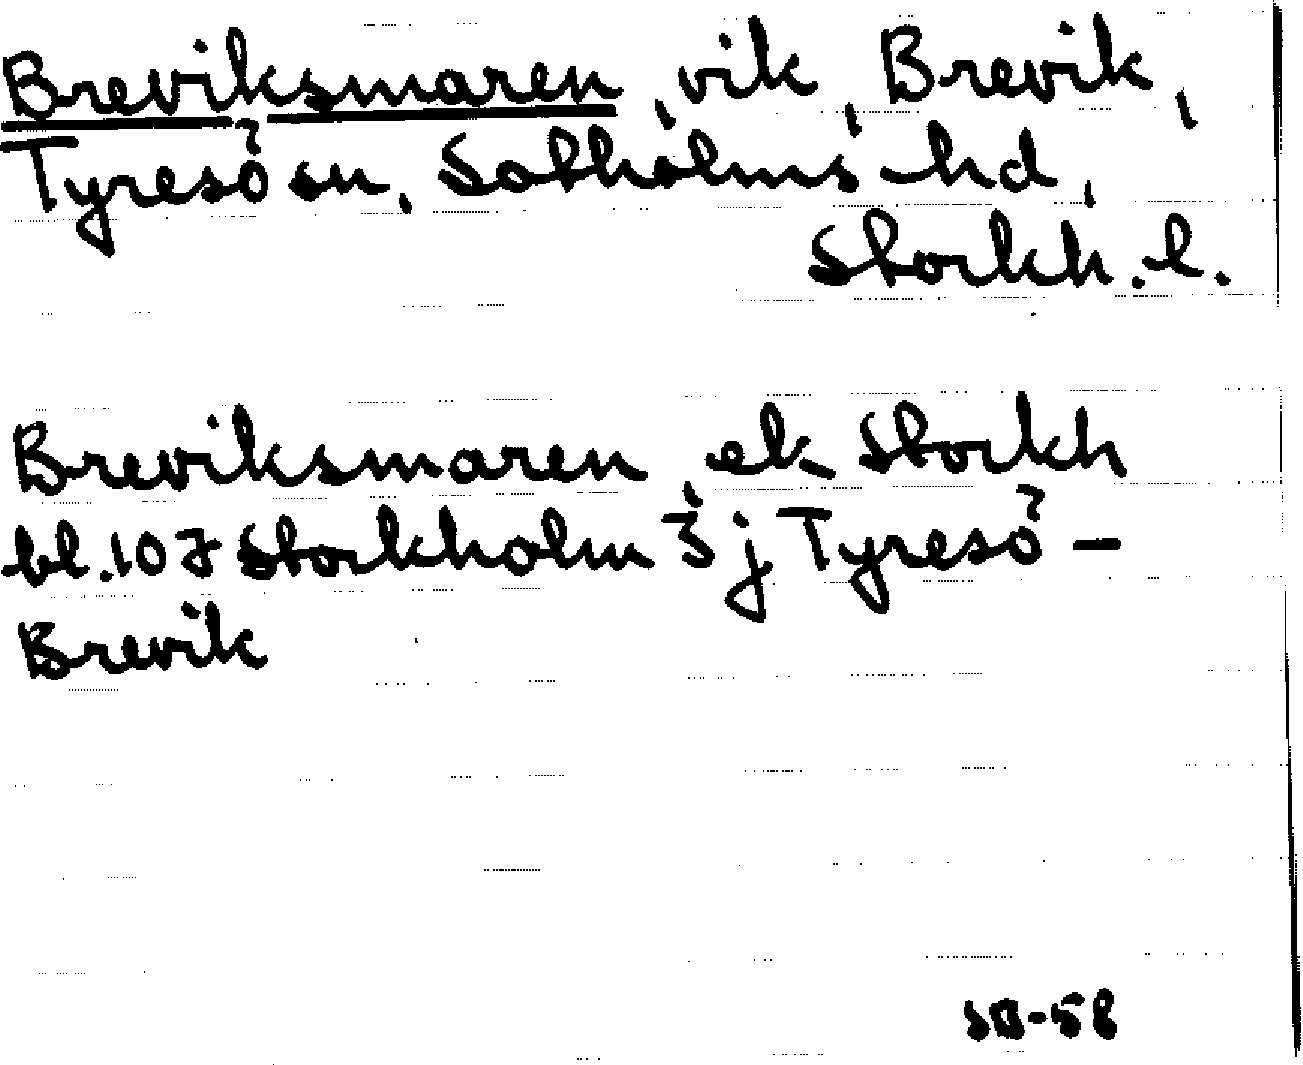 Breviksmaren, vik, Brevik,
Tyresö sn, Sotholms hd,
Stockh. l.
Breviksmaren, ek Stockh
bl. 107 Stockholm 3 j Tyresö –
Brevik
SB-58